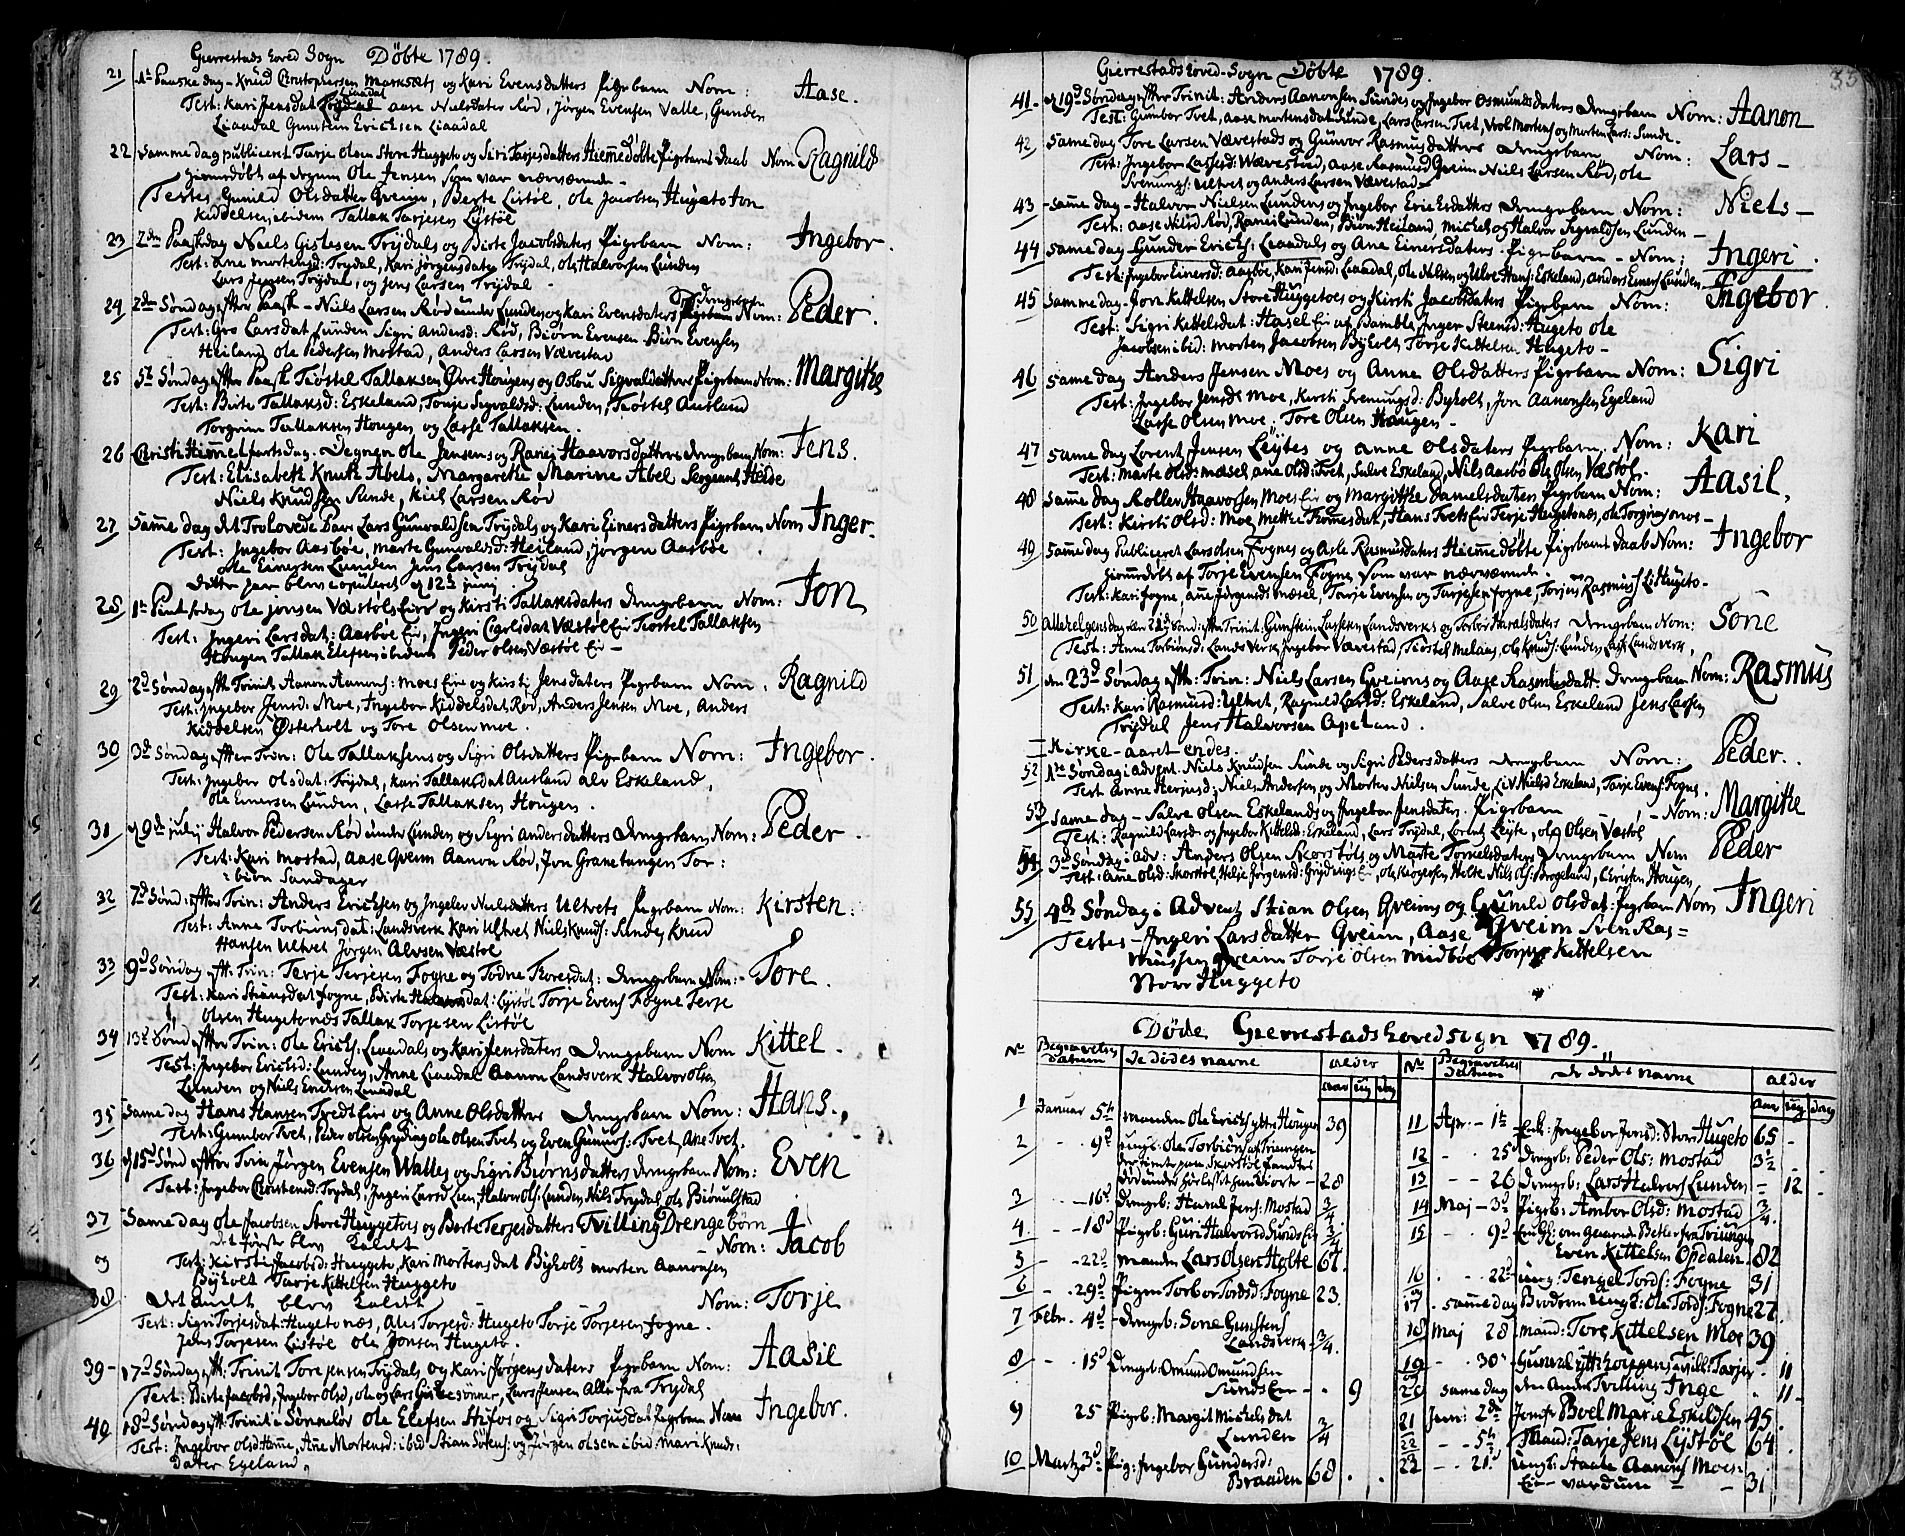 Gierrestads hoved Sogn Døbte 1789.
21 1te Paaske dag - Knud Christophersen Marksæts og Kari Evensdatters Pigebarn Nom: Aase.
Test: Kari Jensdat Aase Nielsdater Rød, Jørgen Evensen Valle, Gunder
Liaadal Gunstein Erichsen Liaadal
22 samme dag publiceret Tarje Olsen Store Huggeto og Siri Tarjesdatters Hiemedøbte Pigebarns Daab Nom Ragnild
hiemdøbt af Ole Jensen som var nærværende -
Testes Gunild Olsdatter Qveim, Berte Listøl, Ole Jacobsen Hugeto Jon
Kiddelsen ibidem Tallak Tarjesen Listøl
23 2den Paaskdag Niels Gislesen Trydals og Birte Jacobsdaters Pigebarn Nom: Ingebor.
Test: Ane Mortensd: Trydal, Kari Jørgensdater Trydal, Ole Halvorsen Lunden
Lars Jensen Trydal, og Jens Larsen Trydal -
24 2den Søndag efter Paask - Niels Larsen Rød under Lunden og Kari Evensdaters Drengebarn Nom: Peder.
Test: Gro Larsdat Lunden Sigri Andersd: Rød, Biørn Evensen Biøn Evensen
Heiland Ole Pedersen Mostad, Anders Larsen Værestad
25 5te Søndag efter Paask Tiøstel Tallaksen Øvre Hougens og Oslou Sigvaldatters Pigebarn Nom: Margitte
Test: Birte Tallaksd: Eskeland, Tonje Sigvaldsd: Lunden, Tiøstel Ausland
Torgrim Tallaksen Hougen og Lasse Tallaksen.
26 Christi Himmelfartsdag. Degnen Ole Jensens og Rani Haavorsdatters Drengebarn Nom: Jens.
Test: Elisabeth Knuth Abels, Margarethe Marine Abel Sergeant Heide
Niels Knudsen Sunde, Kiil Larsen Rød
27 Samme dag det Troloved Par Lars Gunvaldsen Trydals og Kari Einersdatters Pigebarn Nom Inger.
Test: Ingebor Aasbøe, Marte Gunvaldsd: Heiland, Jørgen Aasbøe
Ole Einersen Lunden Jens Larsen Trydal
Dette par blev copuleret d 12te junj
28 1te Pintsedag Ole Jensen Væstøls Eie og Kirsti Tallaksdaters Drengebarn Nom: Jon
Test: Ingeri Larsdat: Aasbøe Eie, Ingeri Carlsdat Væstøl Eie Tiøstel Tallaksen
Hougen Tallak Elefsen ibidem Peder Olsen Væstøl Eie -
29 2d Søndag efth Trinit Aanon Aanons: Moes Eie og Kirsti Jensdaters Pigebarn Nom. Ragnild
Test: Ingebor Jensd: Moe, Ingebor Kiddelsdat Rød, Anders Jensen Moe, Anders
Kiddelsen Østerholt og Tore Olsen Moe.
30 3d Søndag efter Trin: Ole Tallaksens og Sigri Olsdatters Pigebarn Nom: Ingebor.
Test: Ingebor Olsdat: Trydal, Kari Tallaksdat Ausland Alv Eskeland,
Ole Einersen Lunden, Lasse Tallaksen Hougen.
31 d 9de julij Halvor Pedersen Rød under Lunden og Sigri Andersdatters Drengebarn Nom: Peder.
Test: Kari Mostad, Aase Qveim Aanon Rød, Jon Granetangen Tor:
biøn Sandager
32 7d Sønd: efter Trin: Anders Erichsen og Ingeler Nielsdatters Ultvets Pigebarn Nom: Kirsten:
Test: Anne Torbiørnsdat: Landsverk Kari Ultvet Niels Knuds: Sundey Knud
Hansen Ultvet Jørgen Alvsen Væstøl
33 9d Søndag efth: Trin: Terje Terjesen Fogne og Todne Thoresdat: Drengebarn Nom: Tore.
Test: Kari Stiansdat Fogne, Birte dat: Lystøl Torje Evens Fogne Terje
Olsen Hugetonæs Tallak Torjesen Listøl
34 13d Sønd efter Trin: Ole Erichs: Liaadals og Kari Jensdaters Drengebarn Nom Kittel.
Test: Ingebor Ericksd: Lunden, Anne Liaadal Aanon Landsverk Halvor Olsen
Lunden og Niels Endresen Liaadal
35 Samme dag Hans Hansen Tvedt Eie og Anne Olsdatters Drengebarn Nom: Hans.
Test: Gunbor Tvet, Peder Olsen Gryding Ole Olsen Tvet og Even Gunurs: Tvet, Ane Tvet.
36 d 15d Sønd efter Trin Jørgen Evensen Walles og Sigri Biørnsdatters Drengebarn Nom: Even
Test: Ingebor Christensd: Trydal, Ingeri Larsd Eien, Halvor Ols: Lunden Nils Trydal Ole Biønulstad
37 Same dag Ole Jacobsen Store Huggetoes og Berte Terjesdatters Tvilling Drengebørn
det første blev kaldet - Nom: Jacob
og Test: Kirsti Jacobsd: Huggeto, Kari Mortensdat Byholt Morten Aanonsen
Byholt Tarje Kittelsen Huggeto
38 det andet blev kaldet Nom: Torje
Test: Sigri Torjesdat: Hugetonæs, Ales Torjesd: Hugeto Torje Torjesen Fogne.
Jens Torjesen Listøl Ole Jonsen Hugeto.
39 - 17d Søndag efth: Trinit Tore Jensen Trydals og Kari Jørgensdaters Pigebarn Nom: Aasil
Test: Birte Jacobsd, Ingebor Olsd, Ole og Lars Gislesønner, Lars Jensen Alle fra Trydal
40 18d Søndag efth: Trinit i Sønneløv Ole Elefsen Hufos og Sigri Torjusdat Pigebarn Nom Ingebor.
Test: Ingebor Olsd: Hame, Ane Mortensd: ibid Stian Sørens: og Jørgen Olsen ibid: Mari Knuds:
Dater Egeland.
Gierrestads hoved-Sogn Døbte 1789. 35
41 - d 19d Søndag efter Trinit: Anders Aanonsen Sundes og Ingebor Osmundsdaters Drengebarn Nom: Aanon
Test: Gunbor Tvet, Aase Mortensdat Sunde, Lars Larsen Tvet, Vrol Mortens og Morten Lars: Sunde.
42 Same dag Tore Larsen Værestads og Gunvor Rasmusdatters Drengebarn Nom: Lars -
Test: Ingebor Lassesd: Wærestad, Aase Rasmusd Qveim Niels Larsen Rød, Ole
Trennungs: Ultvet og Anders Larsen Værestad -
43 - same dag - Halvor Nielsen Lundens og Ingebor Ericksdatters Drengebarn Nom: Niels -
Test: Aase Nilsd Rød, Rani Lunden, Biøn Heiland, Michel og Halvor Sigvaldsen Lunden -
44 same dag Gunder Erichs: Liaadals og Ane Einersdaters Pigebarn - Nom: Ingeri.
Test: Ingebor Einersd: Aasbøe, Kari Jensd: Liaadal, Ole Nilsen og Ulve Hans: Eskeland, Anders Einers Lunden -
45 samme dag - Jørn Kittelsen Store Huggetoes og Kirsti Jacobsdaters Pigebarn Nom: Ingebor.
Test: Sigri Kittelsdat: Hasel Eie af Bamble, Inger Steensd: Hugeto Ole
Jacobsen ibid: Morten Jacobsen Byholt, Torje Kittelsen Hugeto -
46 same dag Anders Jensen Moes og Anne Olsdatters Pigebarn Nom: Sigri
Test: Ingebor Jensd: Moe, Kirsti Trennungsd: Byholt, Jon Aanonsen Egeland
Lasse Olsen Moe, Tore Olsen Haugen -
47 same dag Lorent Jensen Leytes og Anne Olsdaters Pigebarn, Nom: Kari
Test: Marte Olsd: Mæsel, Ane Olsd: Tvet, Salve Eskeland, Nils Aasbo Ole Olsen Væstøl.
48 Same dag Roller Haavorsen Moes Eie og Margitthe Danielsdaters Pigebarn Nom: Aasil,
Test: Kirsti Olsd: Moe, Mette Tronnesdat, Hans Tvets Eie Terje Hugetonæs, Ole Torgrims Moe -
49 samme dag Publiceret Lars Olsen Fognes og Asle Rasmusdaters Hiemedøbte Pigebarns Daab Nom: Ingebor
hiemmedøbt af Torje Evensen Fogne, som var nærværende.
Test: Kari Fogne, Ane Jørgensd: Mæsel, Tarje Evensen og Tarjesen Fogne, Torjus Rasmuss Li Hugeto -
50 Allehelgensdag den 21de Sønd: efth Trinit: Gunstein Lassesen Landsverks og Torbor Haralsdaters Drengebarn Nom: Sone
Test: Anne Torbiønsd: Landsverk Ingebor Værestad, Tiøstel Melaas, Ole Knuds: Lunden Lasse Landsverk,
51 den 23d Søndag efth: Trin: Niels Larsen Qveims og Aase Rasmusdatt: Drengebarn Nom: Rasmus
Test: Kari Rasmusd: Ultvet, Ragnild Larsd: Eskeland, Salve Olsen Eskeland Jens Larsen
Trydal Jens Halvorsen Apeland.
Kirke - aaret endes.
52 1te Søndag i Advent. Niels Knudsen Sunde og Sigri Pedersdatters Drengebarn Nom: Peder.
Test Anne Herjusd: Niels Andersen, og Morten Nielsen Sunde, Liv Nielsd Eskeland, Tarje Evens: Fogne.
53 same dag - Salve Olsen Eskelands og Ingebor Jensdater Pigebarn - Nom: Margitte
Test: Ragnild Larsd og Ingebor Kittelsd: Eskeland, Lars Trydal, Lorentz Leyte, Ole Olsen Væstøl
54 3d Søndag i Adv: Anders Olsen Skorstøls og Marte Torkelsdaters Drengebarn Nom Peder
Test: Ane Olsd: Skorstøl, Helje Jørgensd: Gryding Eie, Ole Holte Nils Ols: Brogeland, Christen Hougen,
55 4de Søndag i Advent Stian Olsen Qveims og Gunild Olsdat: Pigebarn Nom Ingeri
Testes - Ingeri Larsdatter Qveim, Aase Qveim Sven Ras=
mussen Qveim Torje Olsen Midbøe Torje Kittelsen
Store Huggeto
Døde Gierrestads hovedsogn 1789.
No Begravelses Datum De dødes navne Alder No Begravelses Datum De dødes navne Alder
aar ug dag aar ug dag
1 Januar 5te Manden Ole Erichs Ytre Hougen 39
2 - - 9d ungk: Ole Torbiøns af Trungen
28
3 - - 16d Drengb: Haral Jens: Mostad 3/4
4 - - 18d Pigeb: Guri Halvorsd Sunds Eie 3/4
5 - 22d Manden Lars Olsen Holte 67.
6 - 29d Pigen Torbor Tordsd Fogne 23.
7 Febr. 4d Drengb: Sone Gunstens
Landsverk 3/4.
8 - 15d Drengb: Osmund Omundsen
Sunds Eie - 9
9 25 Pigeb: Margit Michelsdat
Lunden 3/4
10 Martz 3d Pig: Ingebor Gundersd:
Braaden 68.
11 Apr. - 1te Enk: Ingebor Jonsd: Store Hugeto 65 -
12 - - 25 Drengb: Peder Ols: Mostad 3 1/2
13 - - 26 Drengb: Lars Halvors Lunden - 12
14 Maj - 3d Pigeb: Aanbor Olsd: Mostad 3/4
15 - 9d Betler fra Trungen
Even Kittelsen Opdalen 82
16 - - 22d ung: Tengel Tords: Fogne 31
17 - samme dag Broderen Ungk: Ole Tords: Fogne 27.
18 Maj 28 Mand: Tore Kittelsen Moe 39
19 - - 30 Gunuld 11
20 same dag den anden Tvilling Inge - 11 -
21 Juni 2de Jomfr Boel Marie Eskildsen 45.
22 - - 5te Mand: Tarje Jens Lystøl 64
23 - - 21d ungk: Staale Aanons Moes -
Eie - Vardum - - 31